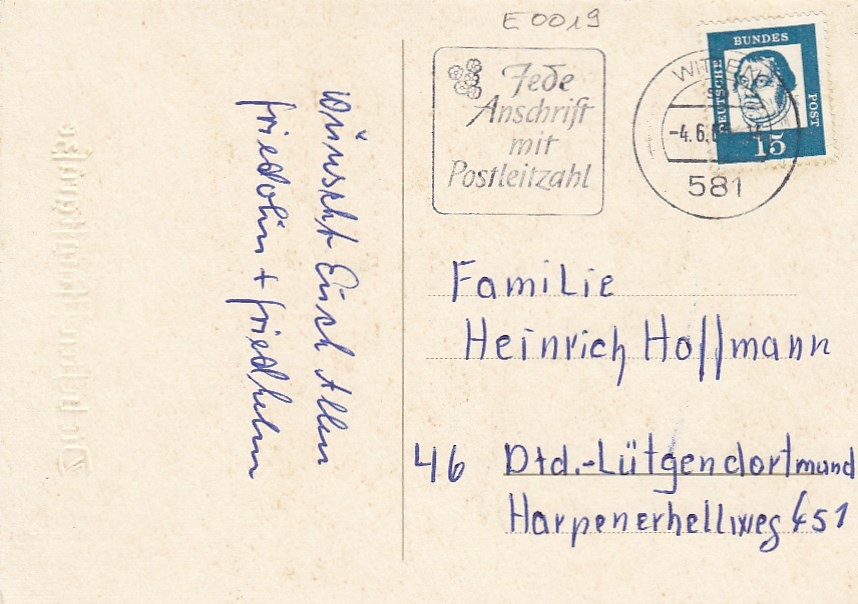 E0019
Jede
Anschrift
mit
Postleitzahl
WITTEN
-4.6.
581
DEUTSCHE
BUNDES
POST
15
wünscht Euch Allen
Friedolin + Friedhelm
Familie
Heinrich Hoffmann
46 Dtd.-Lütgendortmund
Harpenerhellweg 451